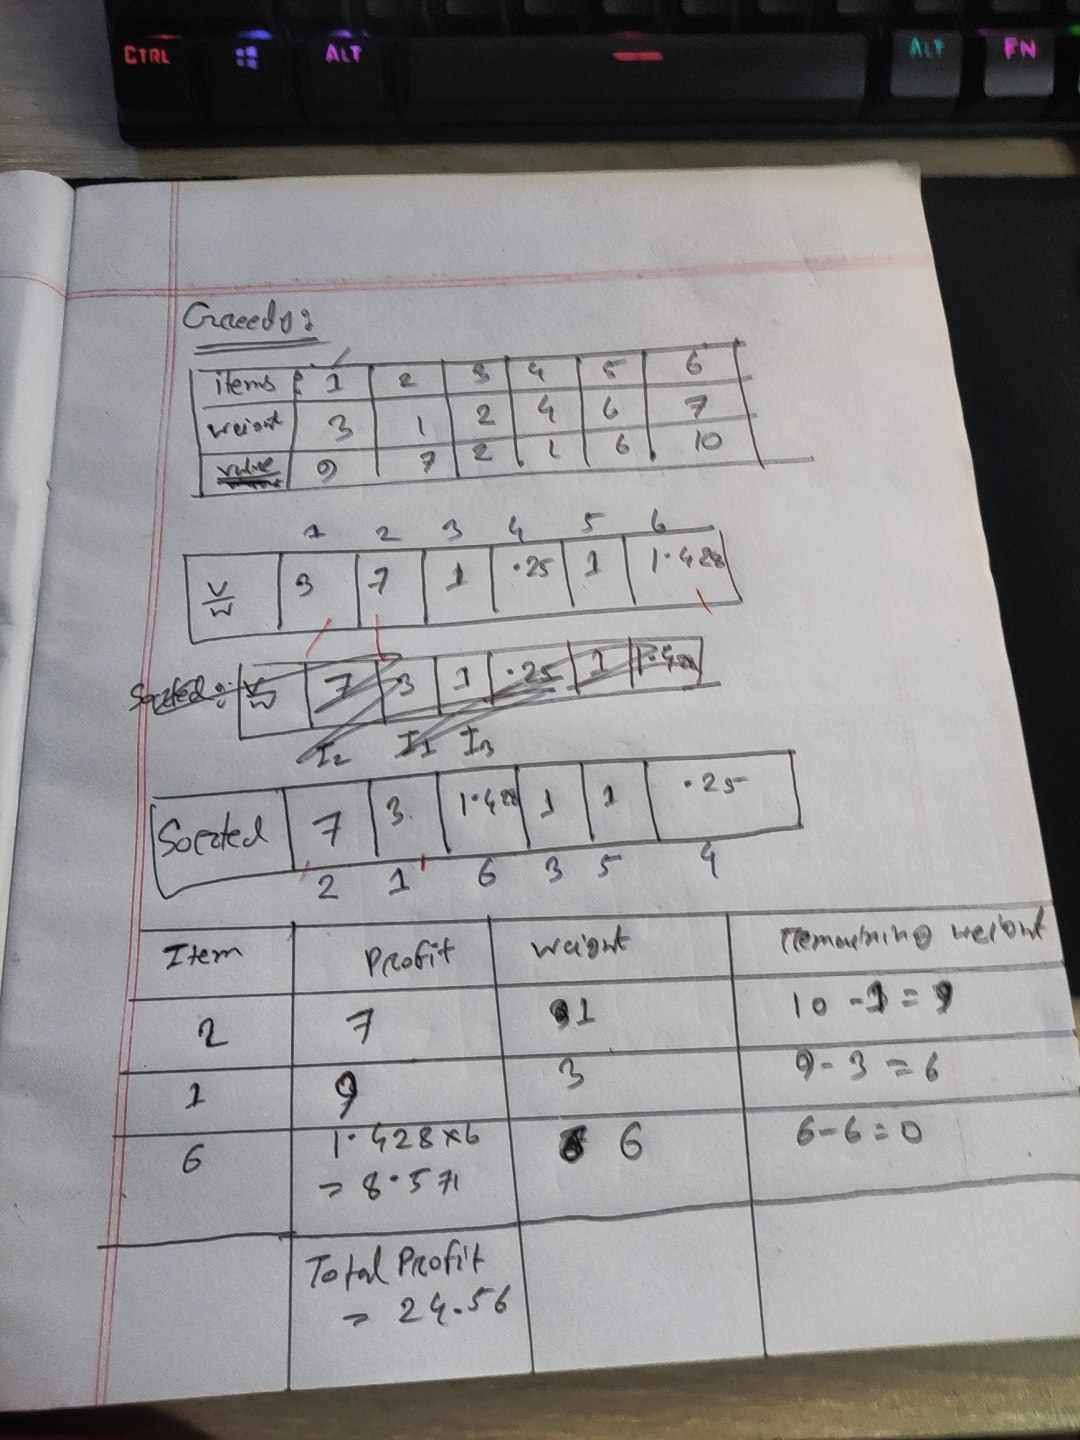 CTRL ALT ALT FN
Greedy:
items: 1 2 3 4 5 6
weight 3 1 2 4 6 7
value 9 7 2 1 6 10
1 2 3 4 5 6
V/W 3 7 1 .25 1 1.428
Sorted: V/W 7 3 1 .25 1 1.428
I2 I1 I3
Sorted 7 3 1.428 1 1 .25
2 1 6 3 5 4
Item Profit Weight Remaining weight
2 7 1 10-1=9
1 9 3 9-3=6
6 1.428x6 6 6-6=0
= 8.571
Total Profit
= 24.56